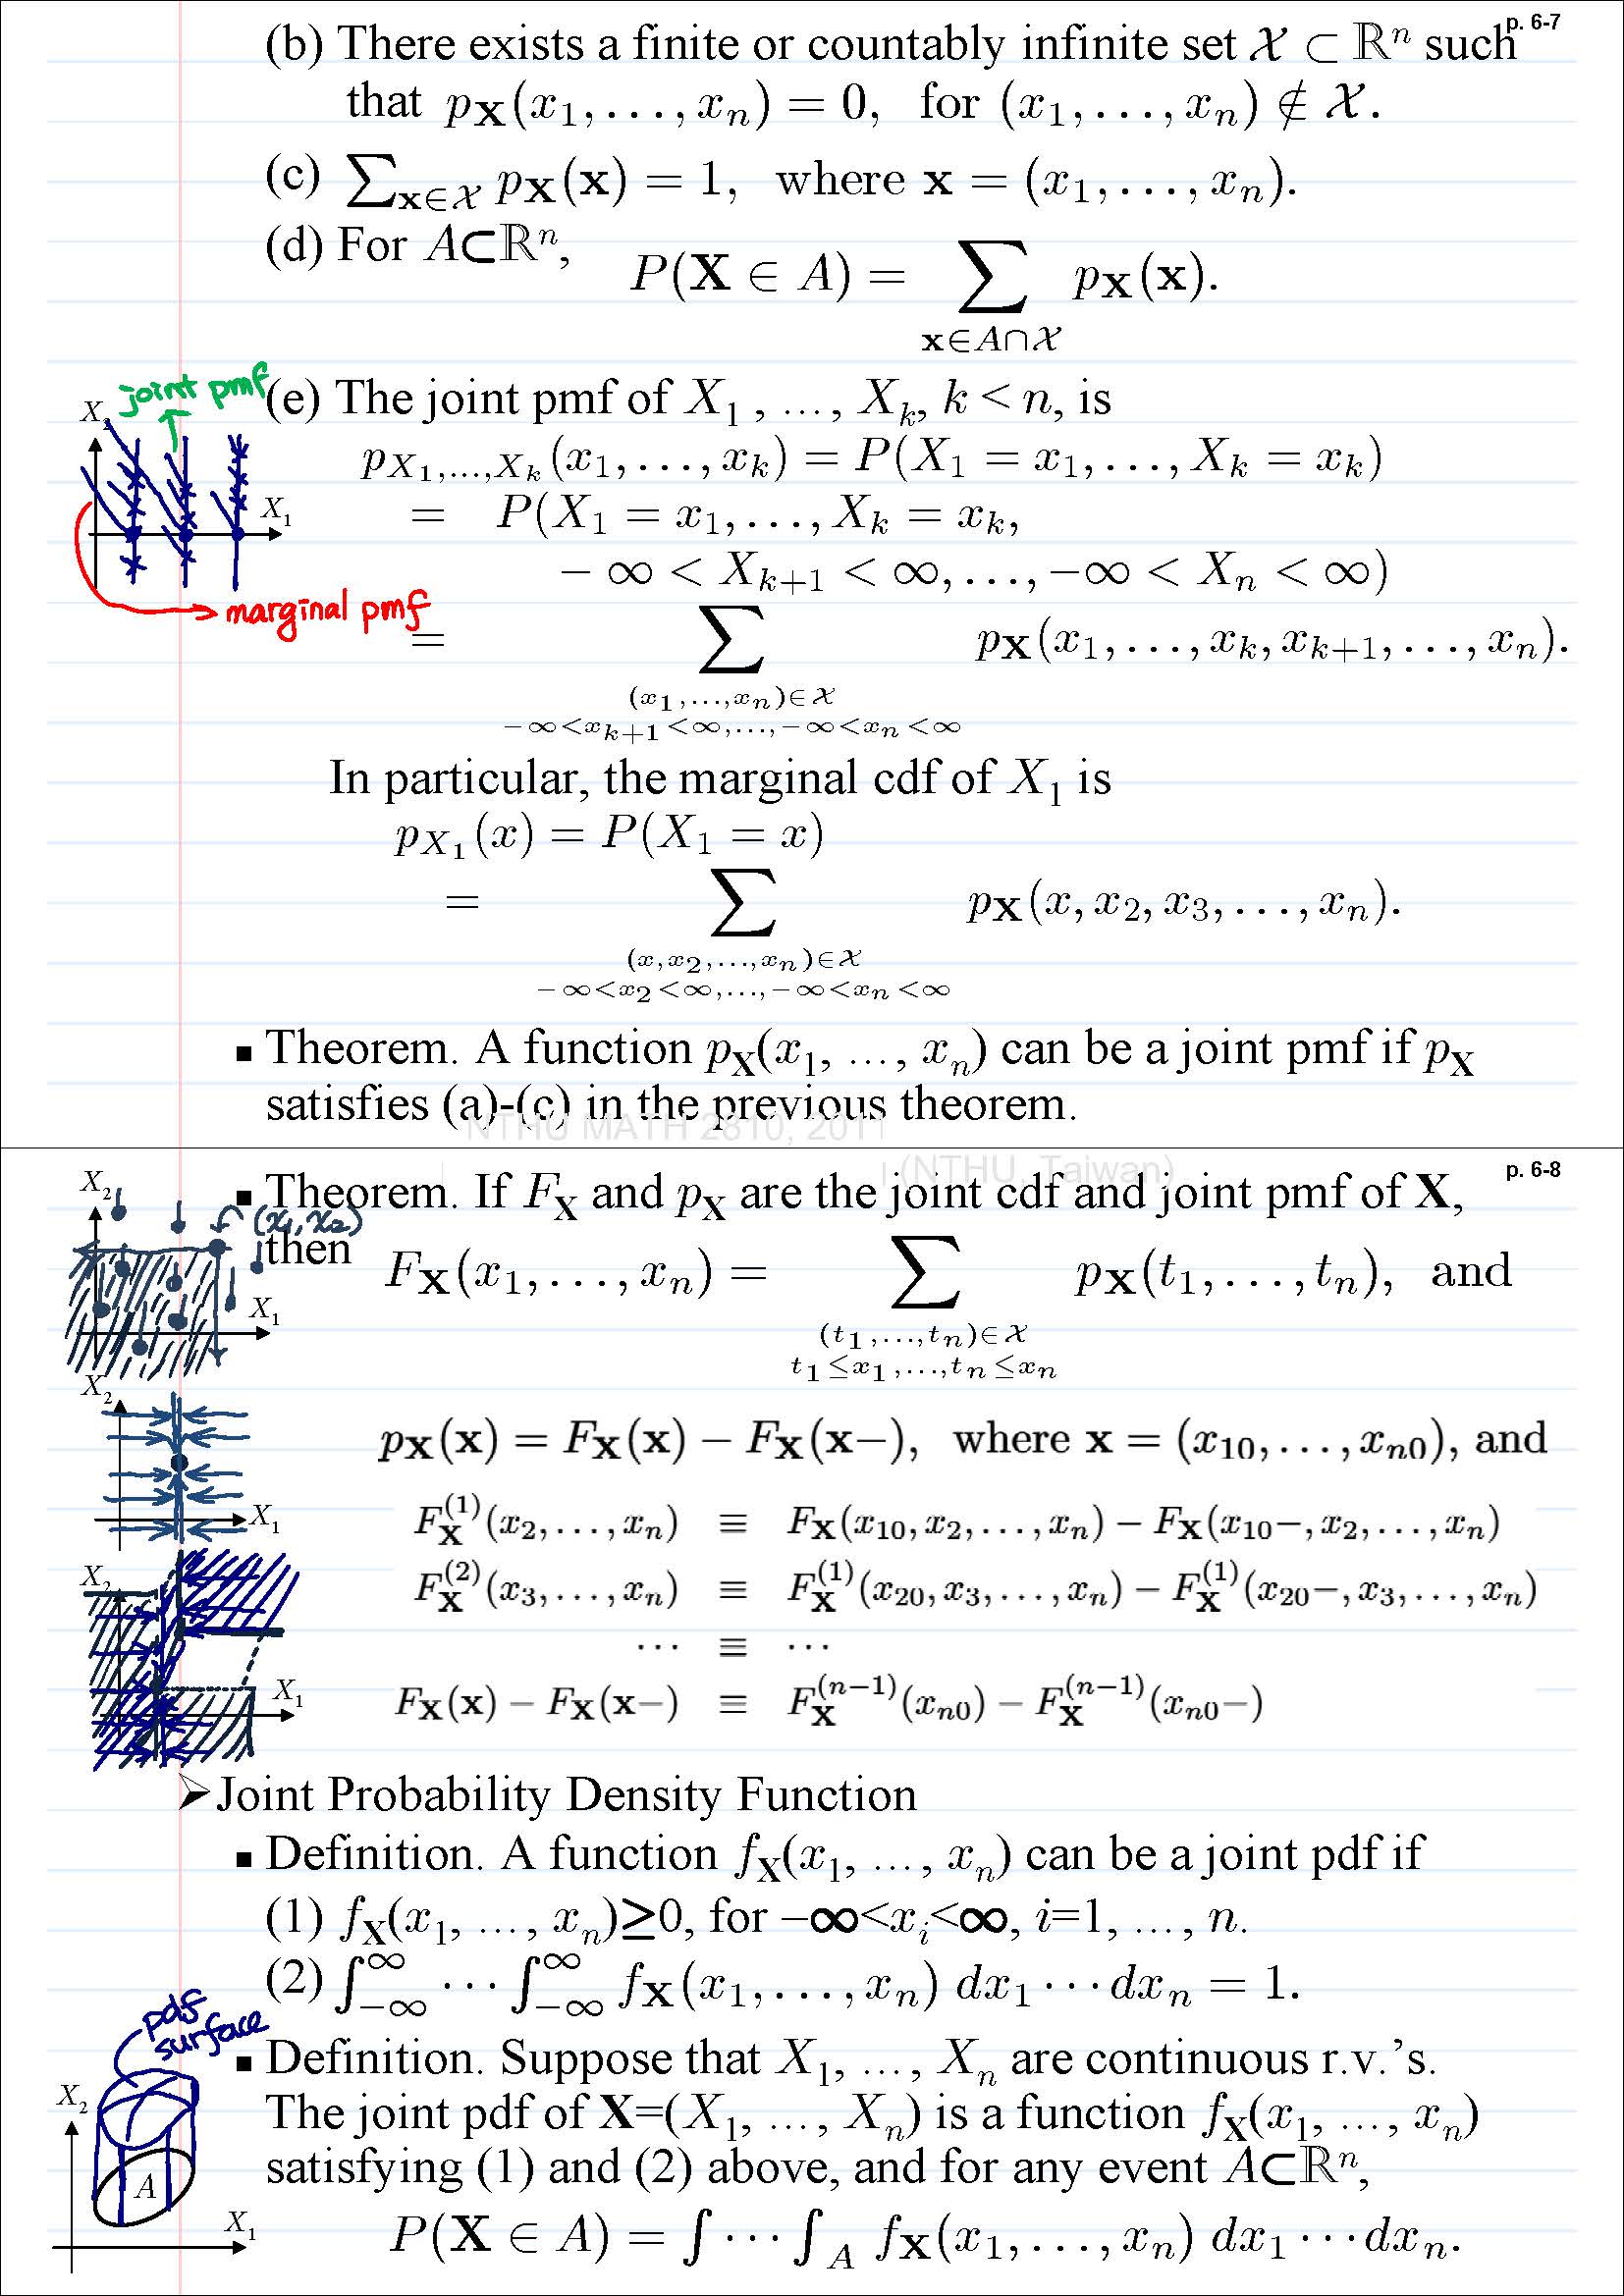 p. 6-7
(b) There exists a finite or countably infinite set 𝒳 ⊂ ℝⁿ such
that p_𝐗(x₁, . . . , xₙ) = 0, for (x₁, . . . , xₙ) ∉ 𝒳.
(c) ∑_{𝐱∈𝒳} p_𝐗(𝐱) = 1, where 𝐱 = (x₁, . . . , xₙ).
(d) For A⊂ℝⁿ, P(𝐗 ∈ A) = ∑_{𝐱∈A∩𝒳} p_𝐗(𝐱).
joint pmf
X₂
X₁
marginal pmf
(e) The joint pmf of X₁ , …, X_k, k < n, is
p_{X₁,...,X_k}(x₁, . . . , x_k) = P(X₁ = x₁, . . . , X_k = x_k)
= P(X₁ = x₁, . . . , X_k = x_k,
− ∞ < X_{k+1} < ∞, . . . , −∞ < Xₙ < ∞)
= ∑_{(x₁,...,xₙ)∈𝒳, −∞<x_{k+1}<∞,...,−∞<xₙ<∞} p_𝐗(x₁, . . . , x_k, x_{k+1}, . . . , xₙ).
In particular, the marginal cdf of X₁ is
p_{X₁}(x) = P(X₁ = x)
= ∑_{(x,x₂,...,xₙ)∈𝒳, −∞<x₂<∞,...,−∞<xₙ<∞} p_𝐗(x, x₂, x₃, . . . , xₙ).
▪ Theorem. A function p_𝐗(x₁, …, xₙ) can be a joint pmf if p_𝐗
satisfies (a)-(c) in the previous theorem.
NTHU MATH 2810, 2011
(NTHU, Taiwan)
p. 6-8
▪ Theorem. If F_𝐗 and p_𝐗 are the joint cdf and joint pmf of 𝐗,
X₂
(x₁, x₂)
X₁
then F_𝐗(x₁, . . . , xₙ) = ∑_{(t₁,...,tₙ)∈𝒳, t₁≤x₁,...,tₙ≤xₙ} p_𝐗(t₁, . . . , tₙ), and
X₂
X₁
p_𝐗(𝐱) = F_𝐗(𝐱) − F_𝐗(𝐱−), where 𝐱 = (x₁₀, . . . , xₙ₀), and
F_𝐗^(1)(x₂, . . . , xₙ) ≡ F_𝐗(x₁₀, x₂, . . . , xₙ) − F_𝐗(x₁₀−, x₂, . . . , xₙ)
X₂
X₁
F_𝐗^(2)(x₃, . . . , xₙ) ≡ F_𝐗^(1)(x₂₀, x₃, . . . , xₙ) − F_𝐗^(1)(x₂₀−, x₃, . . . , xₙ)
··· ≡ ···
F_𝐗(𝐱) − F_𝐗(𝐱−) ≡ F_𝐗^(n−1)(xₙ₀) − F_𝐗^(n−1)(xₙ₀−)
➢Joint Probability Density Function
▪ Definition. A function f_𝐗(x₁, …, xₙ) can be a joint pdf if
(1) f_𝐗(x₁, …, xₙ)≥0, for −∞<xᵢ<∞, i=1, …, n.
(2) ∫_{−∞}^{∞} ··· ∫_{−∞}^{∞} f_𝐗(x₁, . . . , xₙ) dx₁ ··· dxₙ = 1.
pdf
surface
X₂
A
X₁
▪ Definition. Suppose that X₁, …, Xₙ are continuous r.v.’s.
The joint pdf of 𝐗=(X₁, …, Xₙ) is a function f_𝐗(x₁, …, xₙ)
satisfying (1) and (2) above, and for any event A⊂ℝⁿ,
P(𝐗 ∈ A) = ∫ ··· ∫_A f_𝐗(x₁, . . . , xₙ) dx₁ ··· dxₙ.